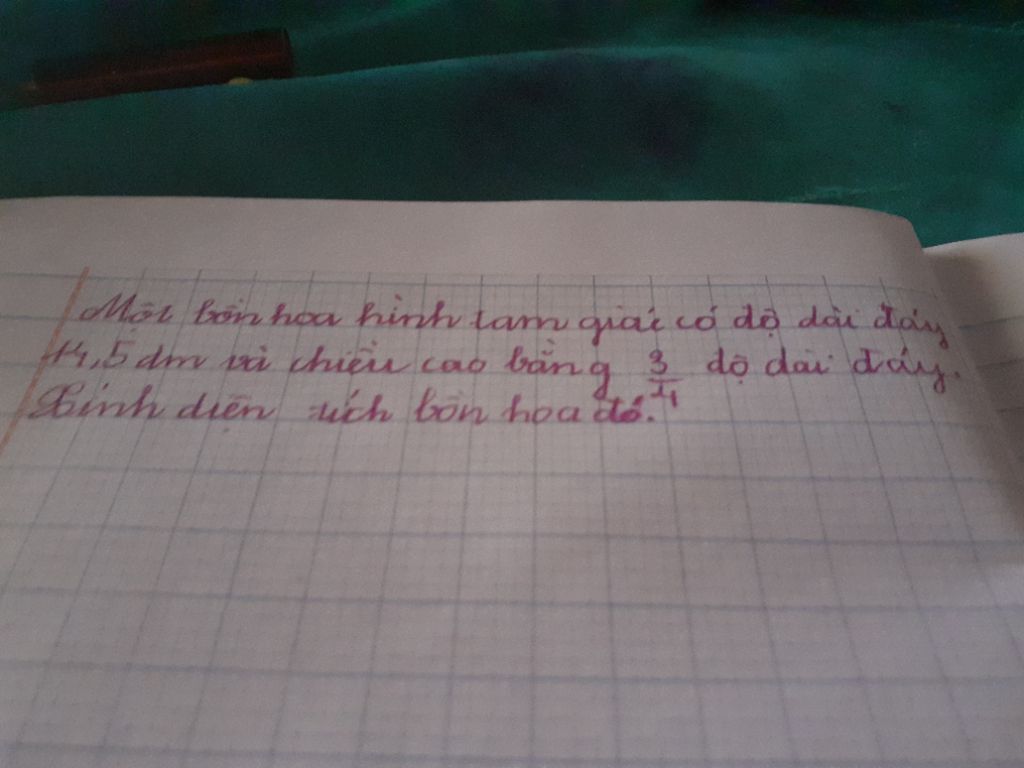 Một bồn hoa hình tam giác có độ dài đáy
14,5 dm và chiều cao bằng 3/4 độ dài đáy.
Tính diện tích bồn hoa đó.